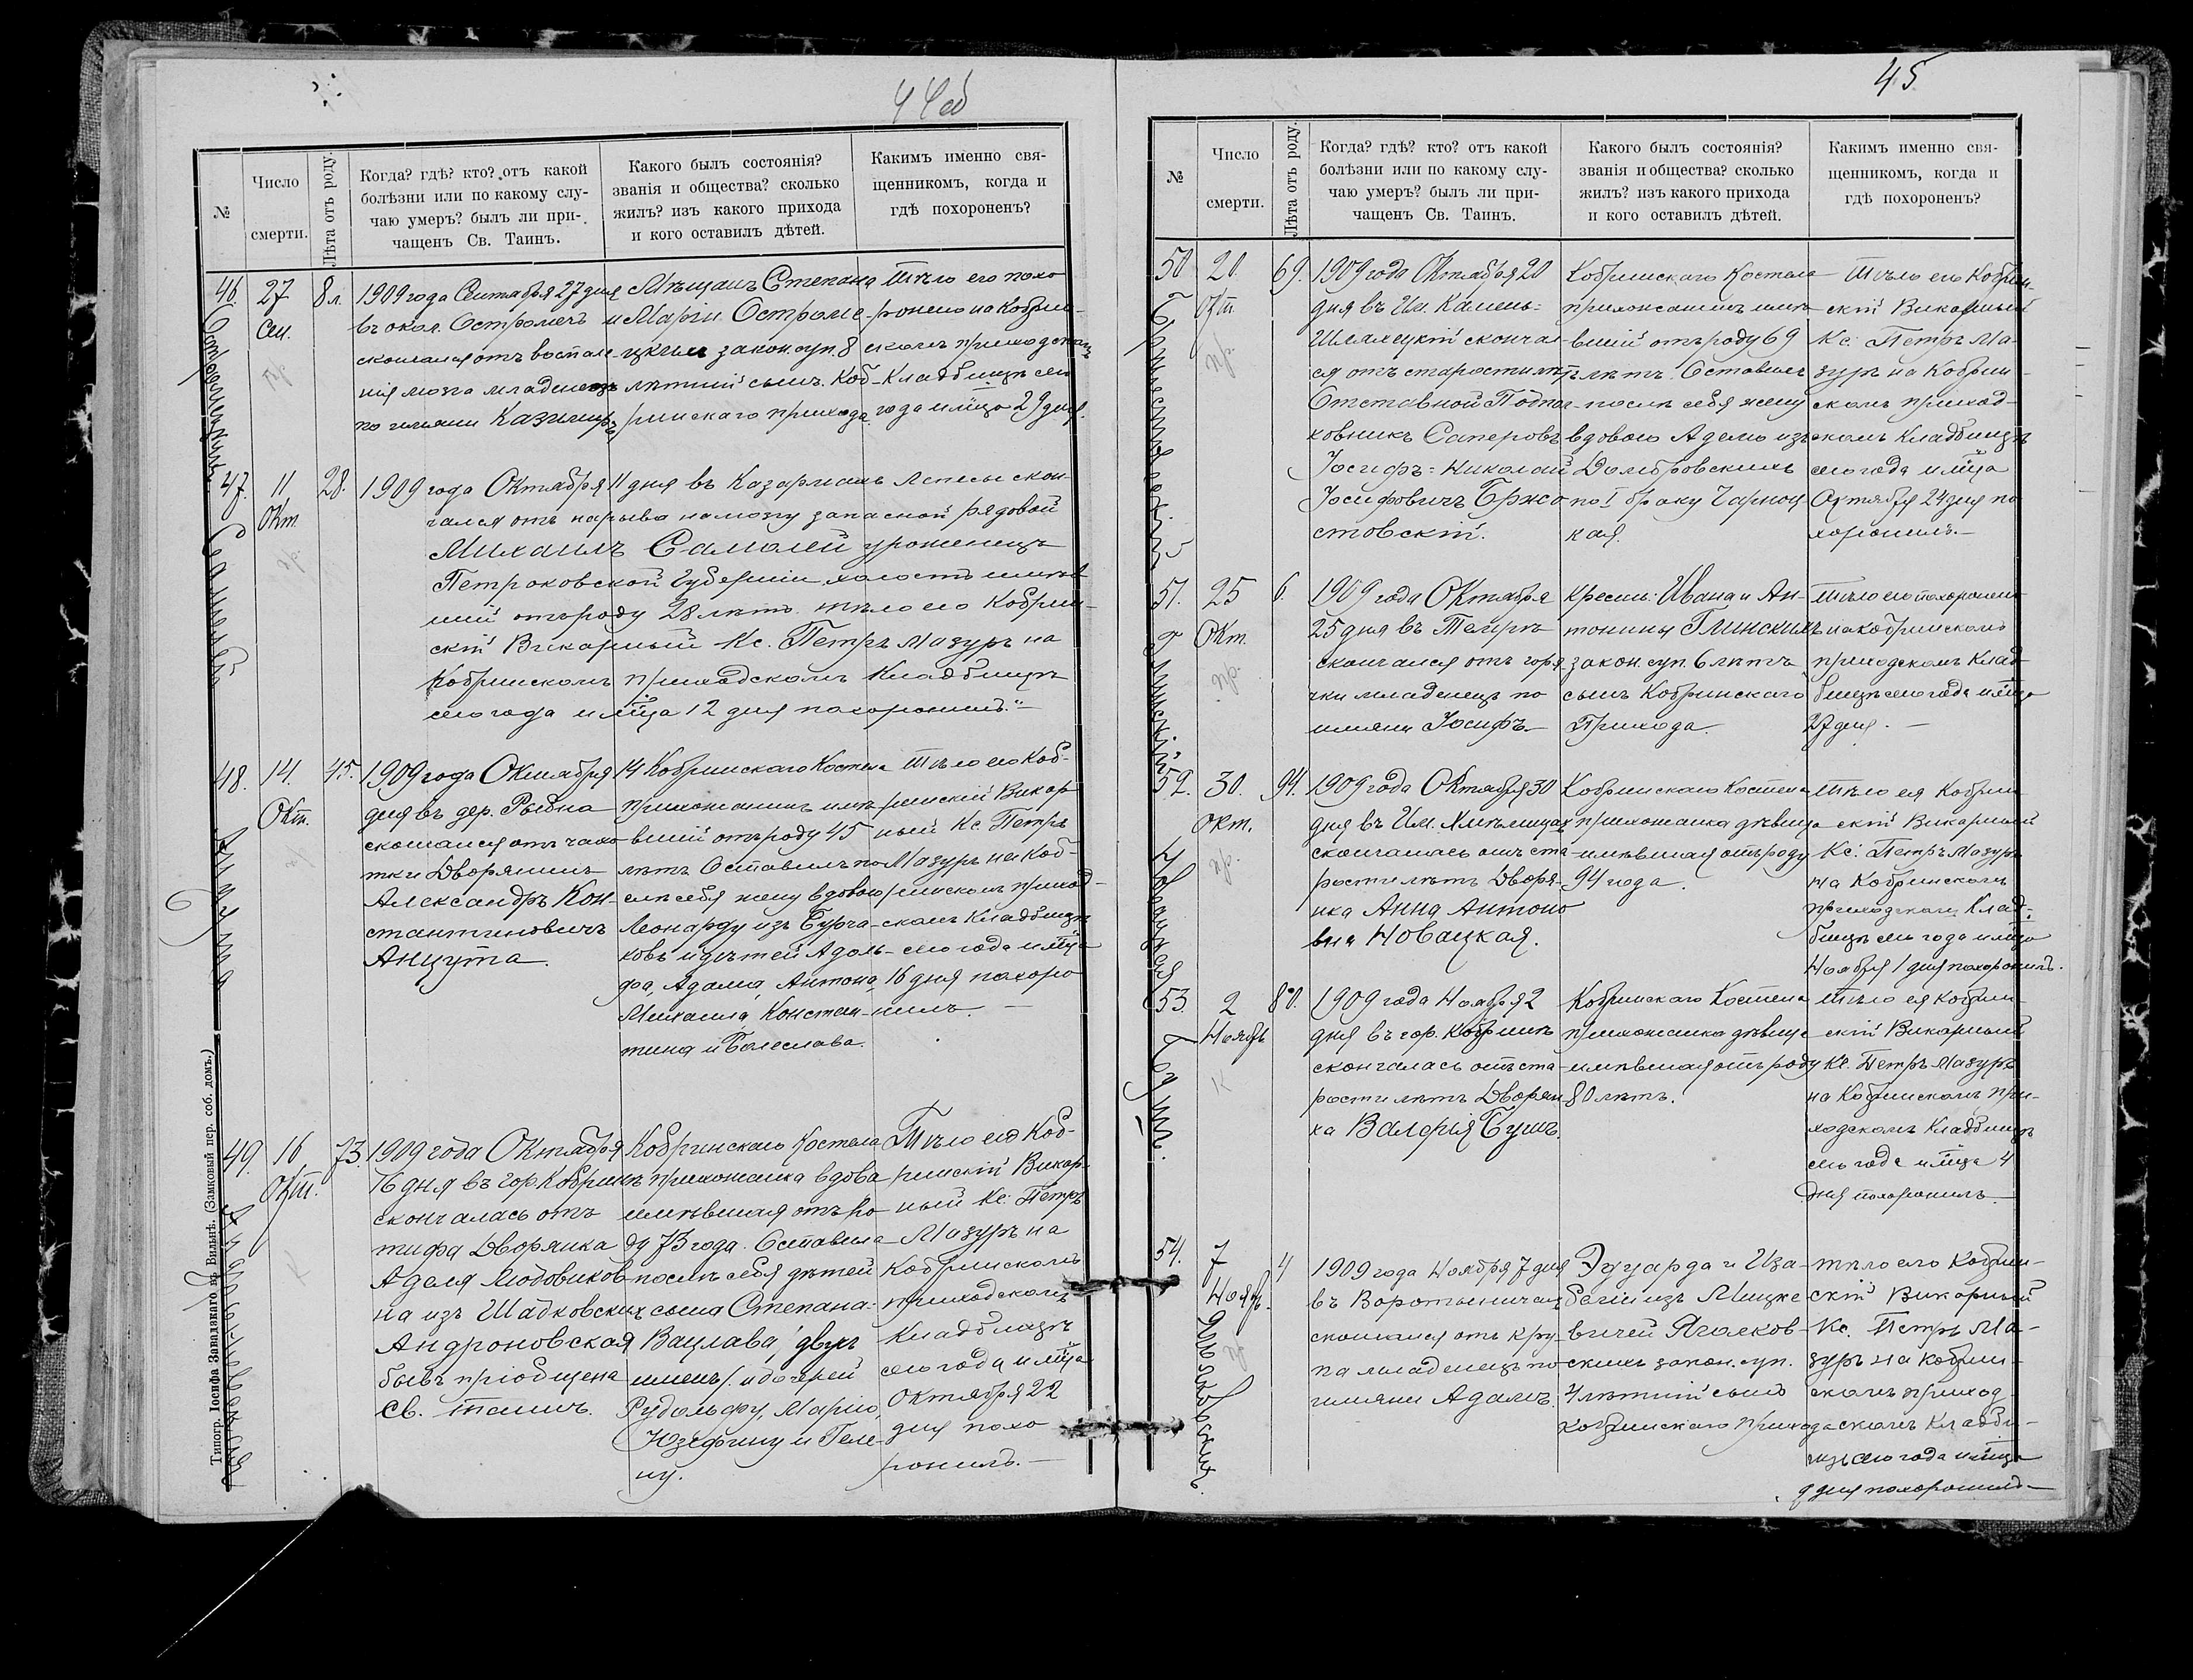 44об
№
Число
смерти.
Лѣта отъ роду.
Когда? гдѣ? кто? отъ какой
болѣзни или по какому слу-
чаю умеръ? былъ ли при-
чащенъ Св. Таинъ.
Какого былъ состоянія?
званія и общества? сколько
жилъ? изъ какого прихода
и кого оставилъ дѣтей.
Какимъ именно свя-
щенникомъ, когда и
гдѣ похороненъ?
46.
27
Сен.
8 л.
1909 года Сентября 27 дня
въ окол. Остромечъ
скончался отъ воспале-
нія мозга младенецъ
по имяни Казимиръ
Мѣщанъ Степана
и Маріи Остроме-
цкихъ закон. суп. 8
лѣтній сынъ. Коб-
ринскаго прихода.
Тѣло его похо
ронено на Кобрин-
скомъ приходскомъ
Кладбищѣ сего
года и мца 29 дня.
47.
11
Окт.
28.
Самолей
1909 года Октября 11 дня въ Казармахъ Лепесы скон-
чался отъ нарыва на мозгу запасной рядовой
Михаилъ Самолей уроженецъ
Петроковской Губерніи, холостъ имѣв
шій отъ роду 28 лѣтъ. тѣло его Кобрин-
скій Викарный Кс. Петръ Мазуръ на
Кобринскомъ приходскомъ Кладбищѣ
сего года и мца 12 дня похоронилъ.
48.
14.
Окт.
45.
Анцута
1909 года Октября 14
дня въ дер. Рыбна
скончался отъ чахо
тки Дворянинъ
Александръ Кон-
стантиновичъ
Анцута.
Кобринскаго Костела
прихожанинъ имѣ
вшій отъ роду 45
лѣтъ Оставилъ по
слѣ себя жену вдовою
Леонарду изъ
ковъ и дѣтей Адоль-
фа, Адама, Антона,
Михаила, Констан-
тина и Болеслава.
Тѣло его Коб-
ринскій Викар
ный Кс. Петръ
Мазуръ на Коб-
ринскомъ приход-
скомъ Кладбищѣ
сего года и мца
16 дня похоро
нилъ. —
49.
16
Окт.
73.
Андроновская
1909 года Октября
16 дня въ гор Кобринѣ
скончалась отъ
тифа Дворянка
Аделя Людовиков
на изъ Шадковскихъ
Андроновская
бывъ пріобщена
Св. таинъ.
Кобринскаго Костела
прихожанка вдова
имѣвшая отъ ро
ду 73 года. Оставила
послѣ себя дѣтей
сына Степана-
Вацлава, двухъ
именъ/ и дочерей
Рудольфу, Марію,
Юзефину и Геле-
ну.
Тѣло ея Коб-
ринскій Викар-
ный Кс: Петръ
Мазуръ на
Кобринскомъ
приходскомъ
Кладбищѣ
сего года и мца
Октября 22
дня похо
ронилъ. —
Типогр. Іосифа Завадзкаго въ Вильнѣ. (Замковый пер. соб. домъ.)
45
№
Число
смерти.
Лѣта отъ роду.
Когда? гдѣ? кто? отъ какой
болѣзни или по какому слу-
чаю умеръ? былъ ли при-
чащенъ Св. Таинъ.
Какого былъ состоянія?
званія и общества? сколько
жилъ? изъ какого прихода
и кого оставилъ дѣтей.
Какимъ именно свя-
щенникомъ, когда и
гдѣ похороненъ?
50
20.
Окт.
69.
1909 года Октября 20
дня въ Им. Камень-
Шляхецкій скончал
ся отъ старости лѣтъ
Отставной Подпол-
ковникъ Саперовъ
Іосифъ-Николай
Іосифовичъ Бржо
стовскій.
Кобринскаго Костела
прихожанинъ имѣ-
вшій отъ роду 69
лѣтъ. Оставилъ
послѣ себя жену
вдовою Аделю изъ
Домбровскихъ
по I браку Чарноц
кая.
Тѣло его Кобрин-
скій Викарный
Кс: Петръ Ма-
зуръ на Кобрин-
скомъ приход-
скомъ Кладбищѣ
сего года и мца
Октября 24 дня по
хоронилъ. —
51.
25
Окт.
6.
Глинскій.
1909 года Октября
25 дня въ
скончался отъ горя
чки младенецъ по
имяни Іосифъ. —
Кресть: Ивана и Ан-
тонины Глинскихъ
закон. суп. 6 лѣтъ
сынъ Кобринскаго
Прихода.
Тѣло его похоронено
на кобринскомъ
приходскомъ Клад-
бищѣ сего года и мца
27 дня. —
52.
30.
Окт.
94.
Новацкая
1909 года Октября 30
дня въ Им. Хмѣлищахъ
скончалась отъ ста-
рости лѣтъ Дворя-
нка Анна Антоно
вна Новацкая.
Кобринскаго Костела
прихожанка дѣвица
имѣвшая отъ роду
94 года.
Тѣло ея Кобрин
скій Викарный
Кс: Петръ Мазуръ
на Кобринскомъ
приходскомъ Клад-
бищѣ сего года и мца
Ноября 1 дня похоронилъ.
53.
2
Ноябрь
80.
Бушъ.
1909 года Ноября 2
дня въ гор. Кобринѣ
скончалась отъ ста-
рости лѣтъ Дворян
ка Валерія Бушъ.
Кобринскаго Костела
прихожанка дѣвица
имѣвшая отъ роду
80 лѣтъ.
Тѣло ея кобрин-
скій Викарный
Кс. Петръ Мазуръ
на Кобринскомъ при-
ходскомъ Кладбищѣ
сего года и мца 4
дня похоронилъ. —
54.
7
Ноябр.
4
1909 года Ноября 7 дня
въ Воротыничахъ
скончался отъ кру-
па младенецъ по
имяни Адамъ.
Эдуарда и Иза-
белли изъ Мицке
вичей Яголков-
скихъ закон. суп.
4 лѣтній сынъ
кобринскаго прихода
тѣло его Кобрин-
скій Викарный
Кс. Петръ Ма-
зуръ на кобрин-
скомъ приход
скомъ Кладби-
щѣ сего года и мца
9 дня похоронилъ —